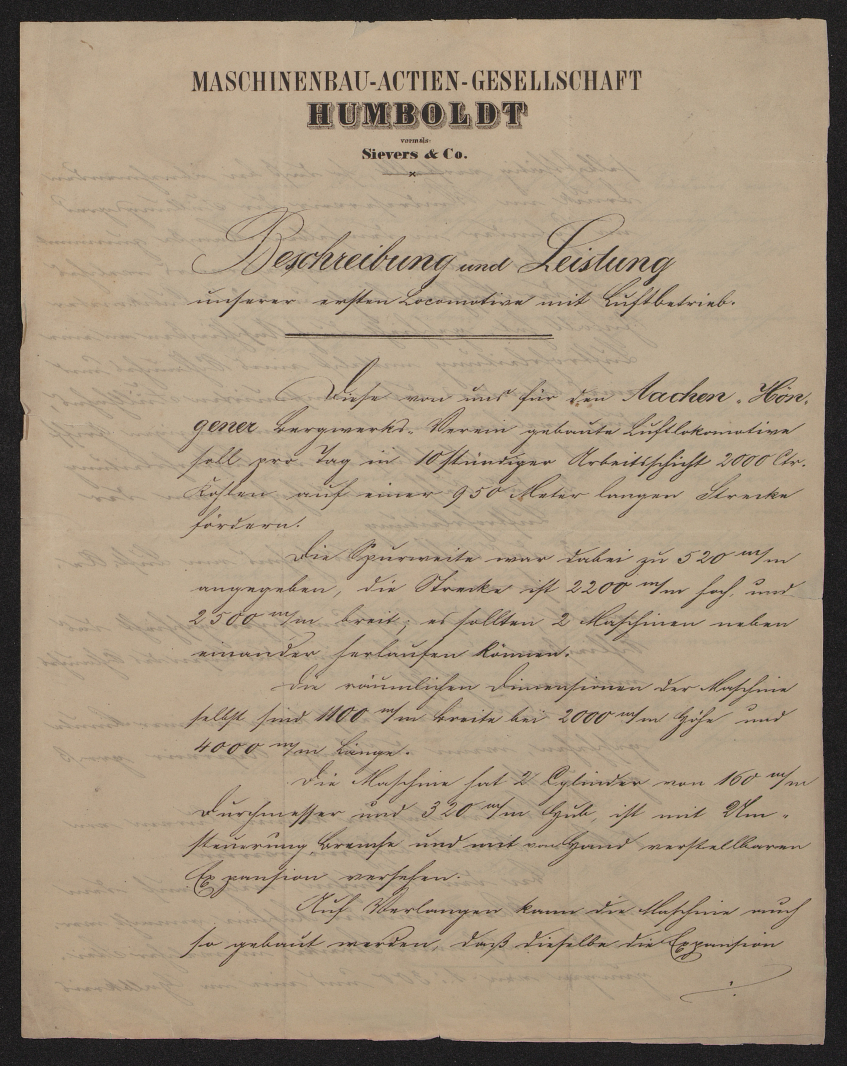 MASCHINENBAU-ACTIEN-GESELLSCHAFT
HUMBOLDT
vormals
Sievers & Co.
Beschreibung und Leistung
unserer ersten Locomotive mit Luftbetrieb.
Diese von uns für den Aachen-Hön-
gener Bergwerks-Verein gebaute Luftlokomotive
soll pro Tag in 10 stündiger Arbeitsschicht 2000 Ctr.
Kohlen auf einer 950 Meter langen Strecke
fördern.
Die Spurweite war dabei zu 520 m/m
angegeben, die Strecke ist 2200 m/m hoch, und
2500 m/m breit; es sollten 2 Maschinen neben
einander herlaufen können.
Die räumlichen Dimensionen der Maschine
selbst sind 1100 m/m Breite bei 2000 m/m Höhe und
4000 m/m Länge.
Die Maschine hat 2 Cylinder von 160 m/m
Durchmesser und 320 m/m Hub, ist mit Um-
steuerung, Bremse und mit von Hand verstellbaren
Expansion versehen.
Auf Verlangen kann die Maschine auch
so gebaut werden, daß dieselbe die Expansion
./.